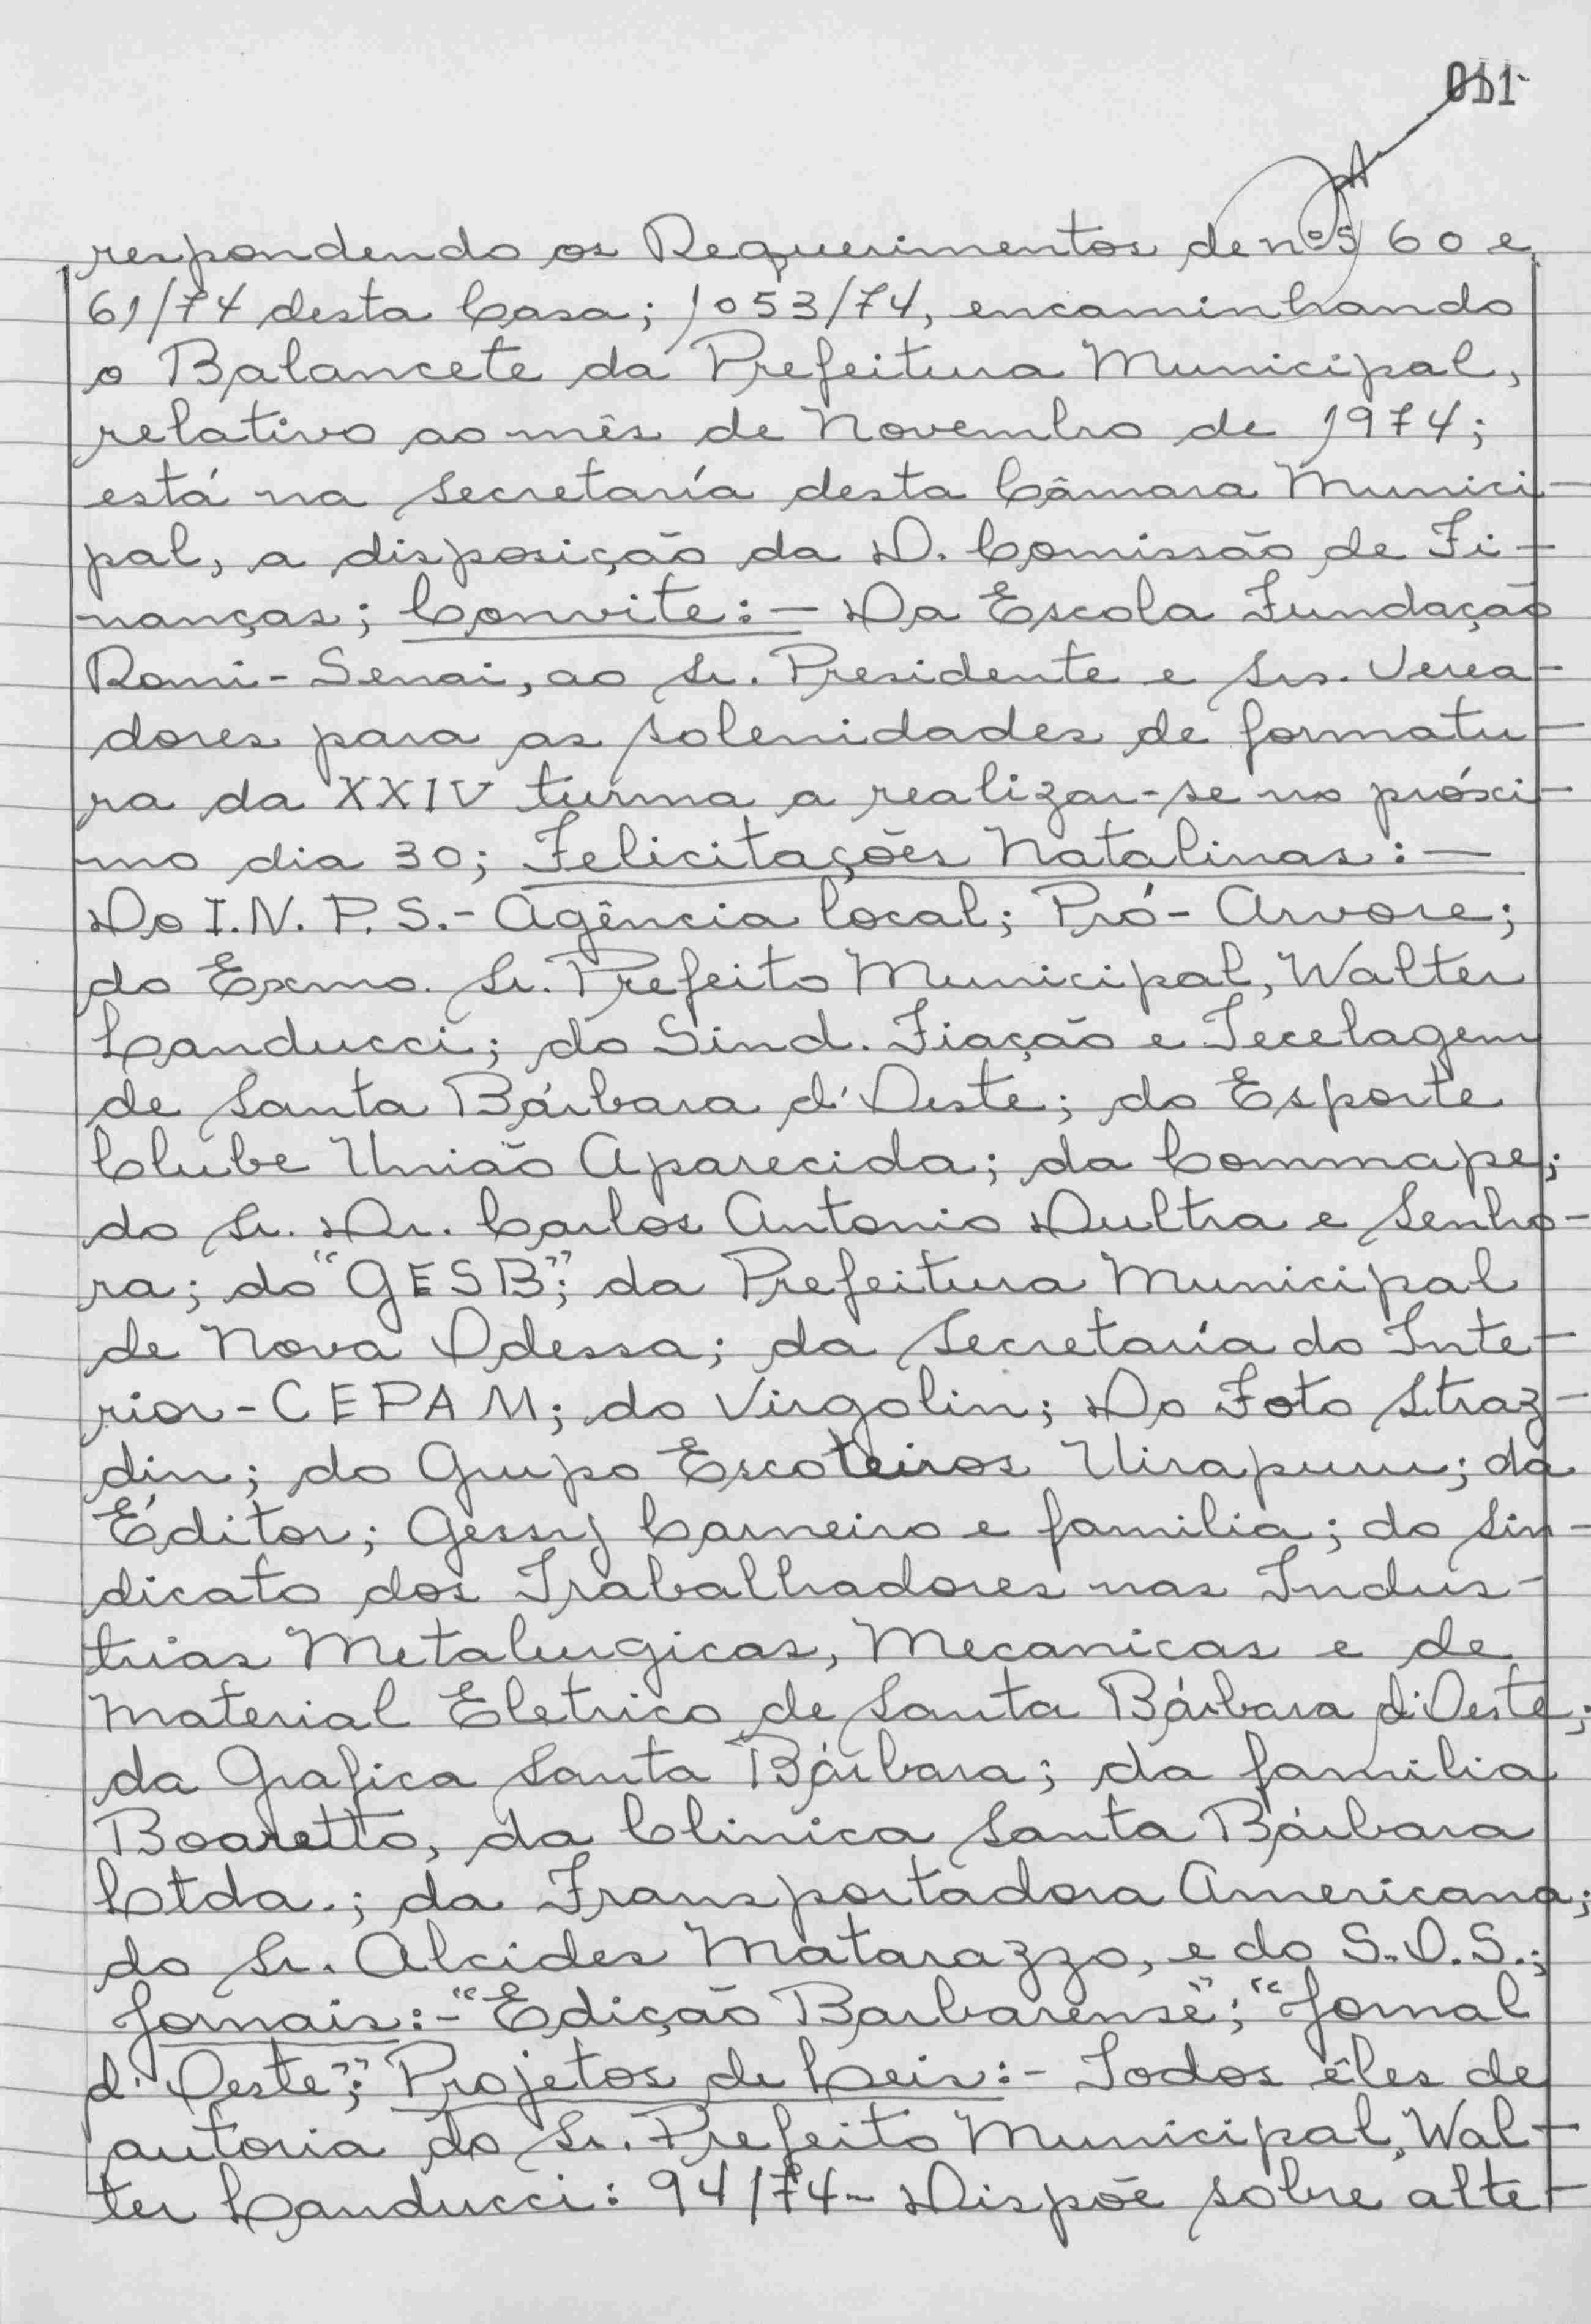 011
respondendo os Requerimentos de nºs 60 e
61/74 desta Casa; 1053/74, encaminhando
o Balancete da Prefeitura Municipal,
relativo ao mês de Novembro de 1974;
está na secretaría desta Câmara Munici-
pal, a disposição da D. Comissão de Fi-
nanças; Convite:- Da Escola Fundação
Romi-Senai, ao Sr. Presidente e Srs. Verea-
dores para as solenidades de formatu-
ra da XXIV turma a realizar-se no próxi-
mo dia 30; Felicitações Natalinas:-
Do I.N.P.S.- Agência local; Pró-Arvore;
do Exmo. Sr. Prefeito Municipal, Walter
Landucci; do Sind. Fiação e Tecelagem
de Santa Bárbara d'Oeste; do Esporte
Clube União Aparecida; da Commape;
do Sr. Dr. Carlos Antonio Dultra e Senho-
ra; do "GESB"; da Prefeitura Municipal
de Nova Odessa; da Secretaría do Inte-
rior-CEPAM; do Virgolin; Do Foto Straz-
din; do Grupo Escoteiros Uirapuru; da
Éditor; Gessy Carneiro e familia; do Sin-
dicato dos Trabalhadores nas Indus-
trias Metalurgicas, Mecanicas e de
Material Eletrico de Santa Bárbara d'Oeste;
da Grafica Santa Bárbara; da familia
Boaretto, da Clinica Santa Bárbara
Ltda.; da Transportadora Americana;
do Sr. Alcides Matarazzo, e do S.O.S.;
Jornais:- "Edição Barbarense"; "Jornal
d'Oeste"; Projetos de Leis:- Todos êles de
autoria do Sr. Prefeito Municipal, Wal-
ter Landucci: 94/74- Dispõe sobre alte-